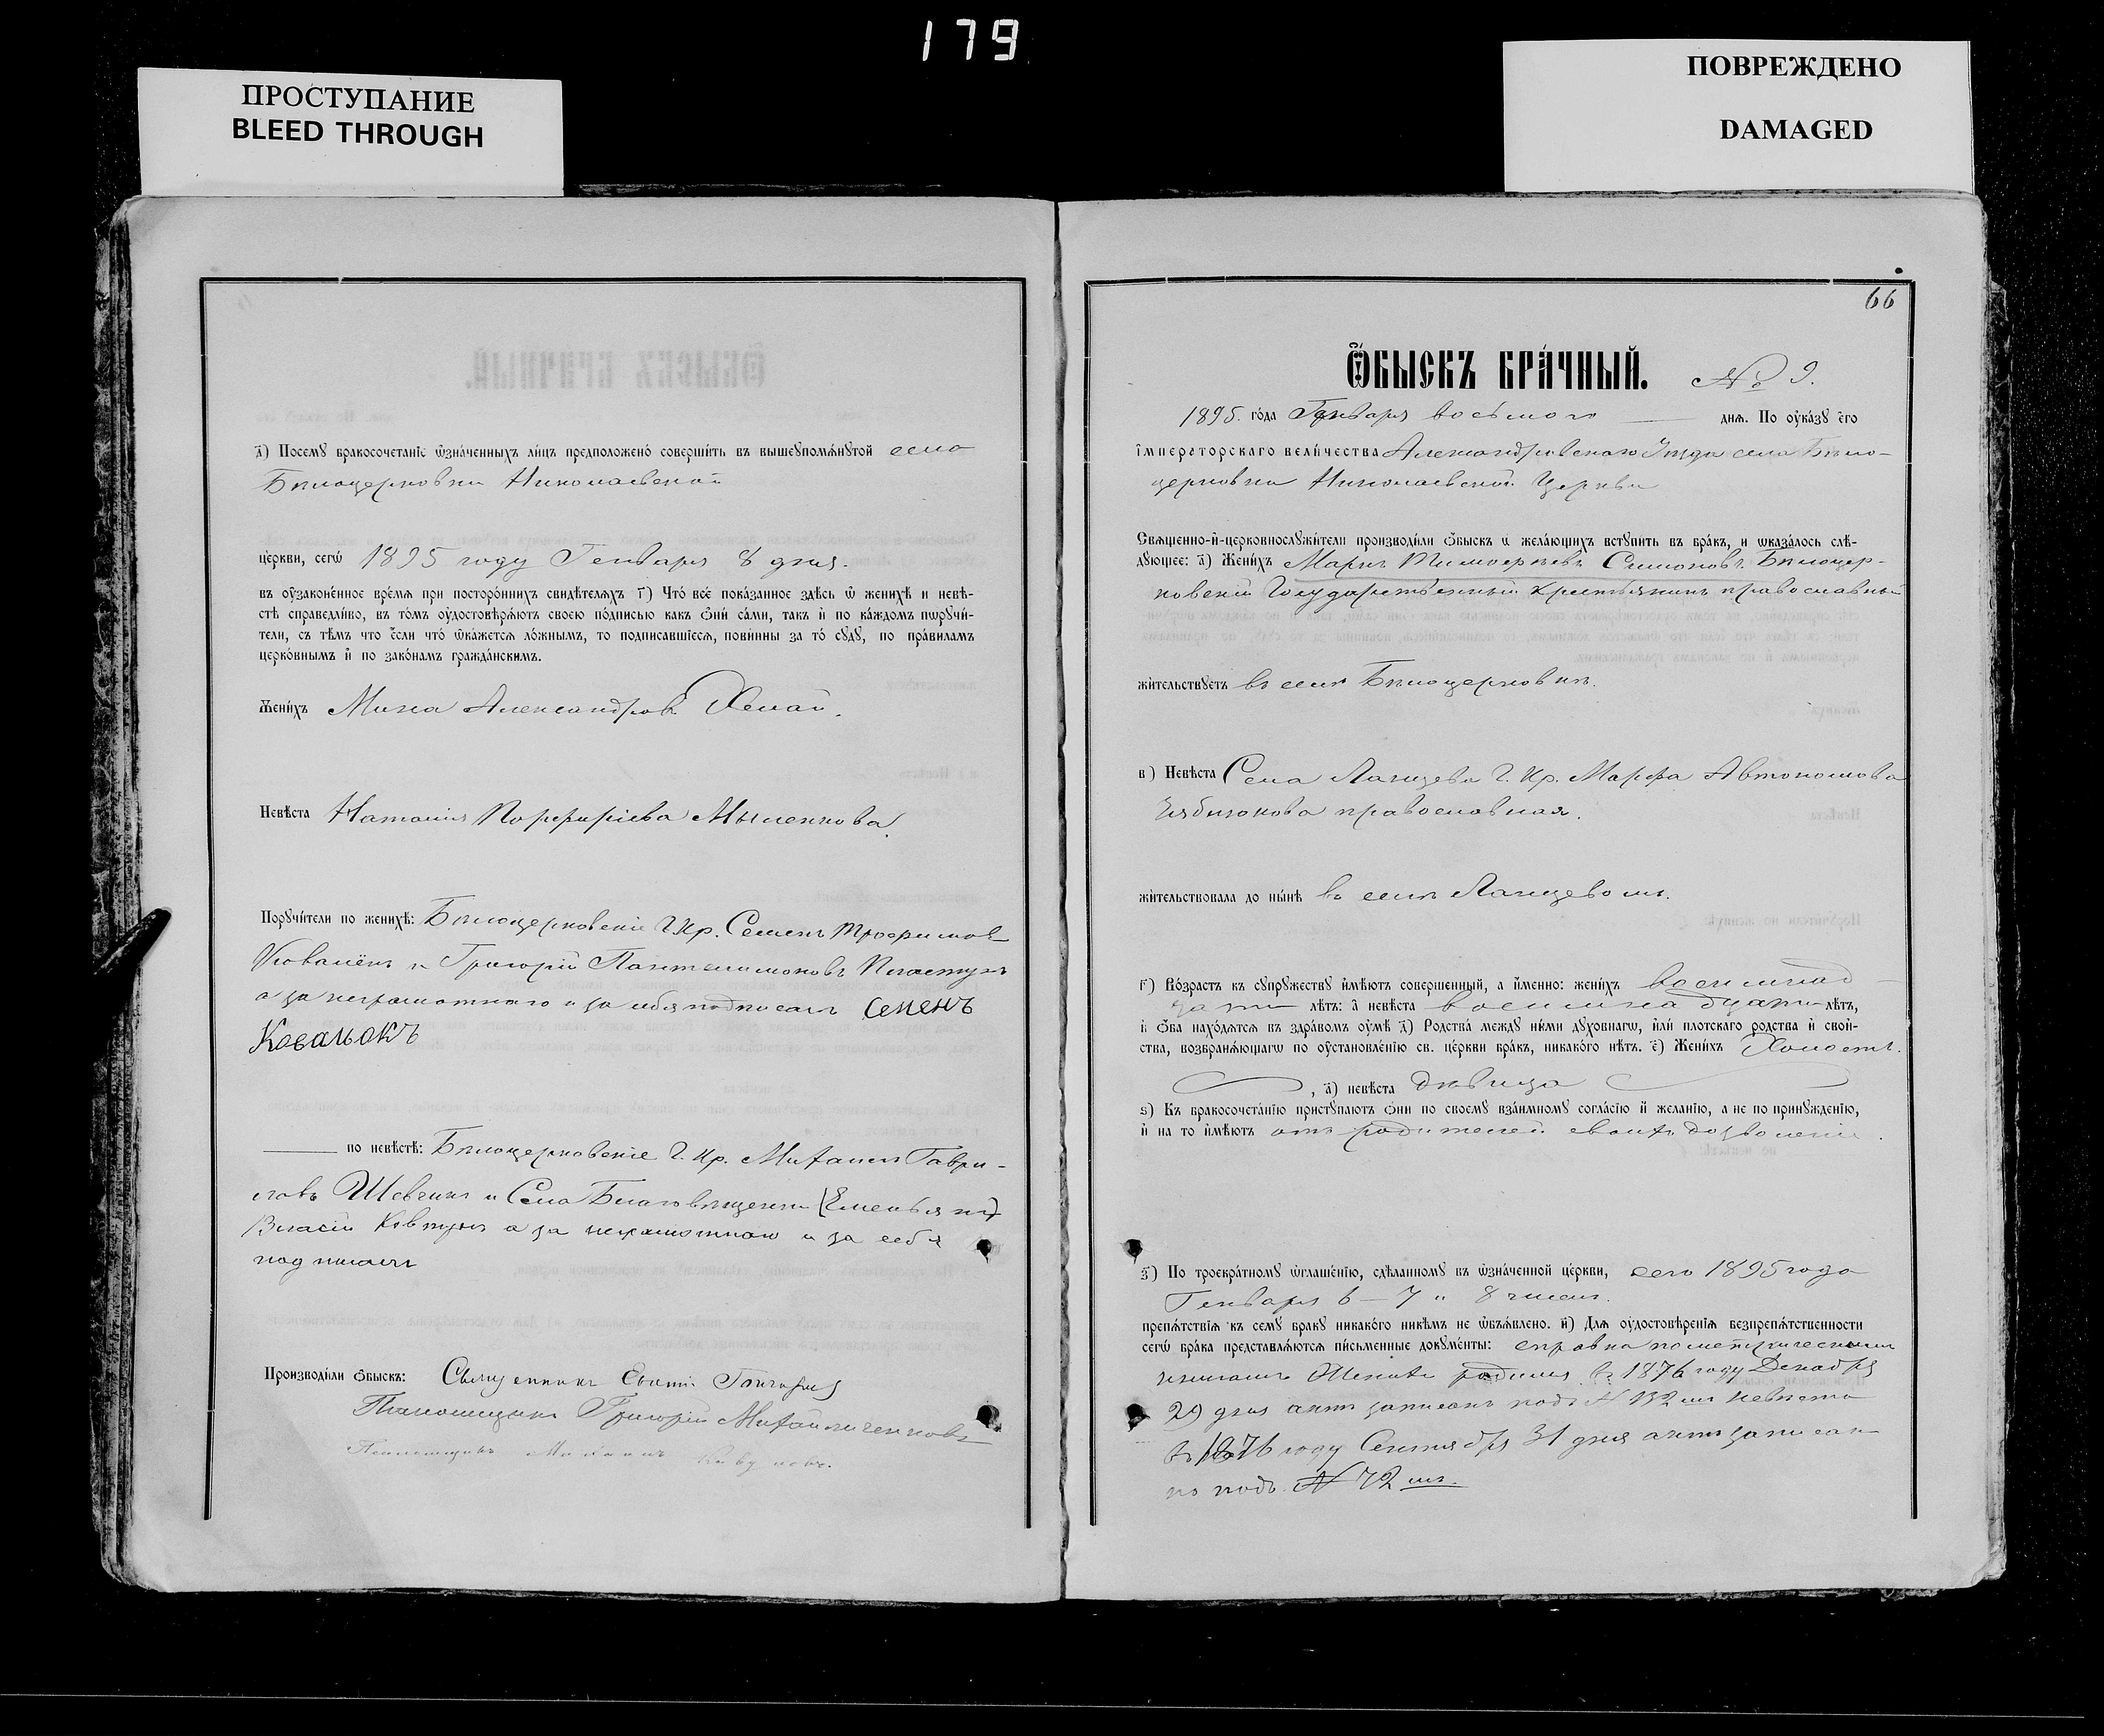 179
ПРОСТУПАНИЕ
BLEED THROUGH
ПОВРЕЖДЕНО
DAMAGED
д҃) Посемꙋ бракосочетанїе ѡзна́ченныхъ ли́цъ предположено́ соверши́ть въ вышеꙋпомѧ́нꙋтой села
Бѣлоцерковки Николаевской
це́ркви, сегѡ̀ 1895 году Генваря 8 дня.
въ оу҆зако́нё́нное вре́мѧ при посторо́ннихъ свидѣ́телѧхъ г҃) Что́ все́ пока́занное здѣ́сь ѡ женихѣ̀ и невѣ́-
стѣ справедли́во, въ то́мъ оу҆достовѣрѧ́ютъ своею по́дписью какъ ѻни́ са́ми, та́къ и҆ по ка́ждомъ пѡрꙋчи́-
тели, съ тѣ́мъ что є҆́сли что́ ѡка́жетсѧ ло́жнымъ, то подписавшїесѧ, пови́нны за то́ сꙋдꙋ̀, по пра́виламъ
церко́внымъ и҆ по зако́намъ гражда́нскимъ.
Жени́хъ Мина Александров Хелай.
Невѣ́ста Наталія Порфиріева Мыленкова.
Порꙋчи́тели по женихѣ̀: Бѣлоцерковскіе Г. Кр. Семенъ Трофимов
и Григорій Пантелимоновъ
а за неграмотнаго и за себя подписалъ Семенъ
Ковальокъ
по невѣ́стѣ: Бѣлоцерковскіе Г. Кр. Михаилъ Гаври-
ловъ Шевчикъ и Села Благовѣщенки
Власій Ковтунъ а за неграмотнаго и за себя
подписалъ
Производи́ли ѻ҆́быскъ: Священникъ Гончаревъ
Псаломщикъ Григорій Михайличенковъ
Псаломщикъ
66
Ѻ҆́БЫСКЪ БРА́ЧНЫЙ. № 9.
1895. го́да Генваря восьмого дня. По оу҆ка́зꙋ є҆гѡ̀
і҆мпера́торскаго вели́чества Александровскаго Уезда села Бѣло-
церковки Николаевской Церкви
Свѧще́нно-и҆-церковнослꙋжи́тели производи́ли ѻ҆́быскъ ѡ жела́ющихъ встꙋпи́ть въ бра́къ, и ѡказа́лось слѣ́-
дꙋющее: а҃) Жени́хъ Марко Тимофеевъ Симоновъ Бѣлоцер-
ковскій Государственный крестьянинъ православный
жи́тельствꙋетъ въ селѣ Бѣлоцерковкѣ.
в҃) Невѣ́ста Села Ланцева Г. Кр. Марфа Автономова
православная.
жи́тельствовала до ны́нѣ въ селѣ Ланцевомъ.
г҃) Во́зрастъ къ сꙋпрꙋ́жествꙋ и҆мѣ́ютъ соверше́нный, а и҆́менно: жени́хъ восемнад-
цати лѣ́тъ: а҆ невѣ́ста восемнадцати лѣ́тъ,
и҆ ѻ҆́ба нахо́дѧтсѧ въ здра́вомъ оу҆мѣ̀ д҃) Родства́ междꙋ ни́ми дꙋхо́внагѡ, и҆ли пло́тскаго родства и҆ свой-
ства, возбранѧ́ющагѡ по оу҆становле́нїю св. це́ркви бра́къ, никако́го нѣ́тъ. є҃) Жени́хъ Холостъ.
, а҃) невѣ́ста дѣвица
ѕ҃) Къ бракосочета́нїю пристꙋпа́ютъ ѻни́ по своемꙋ̀ взаи́мномꙋ согла́сїю и҆ жела́нїю, а не по принꙋжде́нїю,
и҆ на то и҆мѣ́ютъ отъ родителей своихъ дозволеніе.
з҃) По троекра́тномꙋ ѡ҆глаше́нїю, сдѣ́ланномꙋ въ ѡ҆зна́ченной це́ркви, сего 1895 года
Генваря 6 — 7 и 8 чиселъ.
препѧ́тствїѧ къ семꙋ̀ бра́кꙋ никако́го никѣ́мъ не ѡб̾ѧ́влено. и҃) Длѧ оу҆достовѣ́ренїѧ безпрепѧ́тственности
сегѡ̀ бра́ка представлѧ́ютсѧ пи́сьменные докꙋме́нты: справка по метрическимъ
книгамъ Женихъ родился въ 1876 году Декабря
29 дня актъ записанъ подъ № 132 мъ невѣста
въ 1876 году Сентября 31 дня актъ записан-
но подъ № 72 мъ.